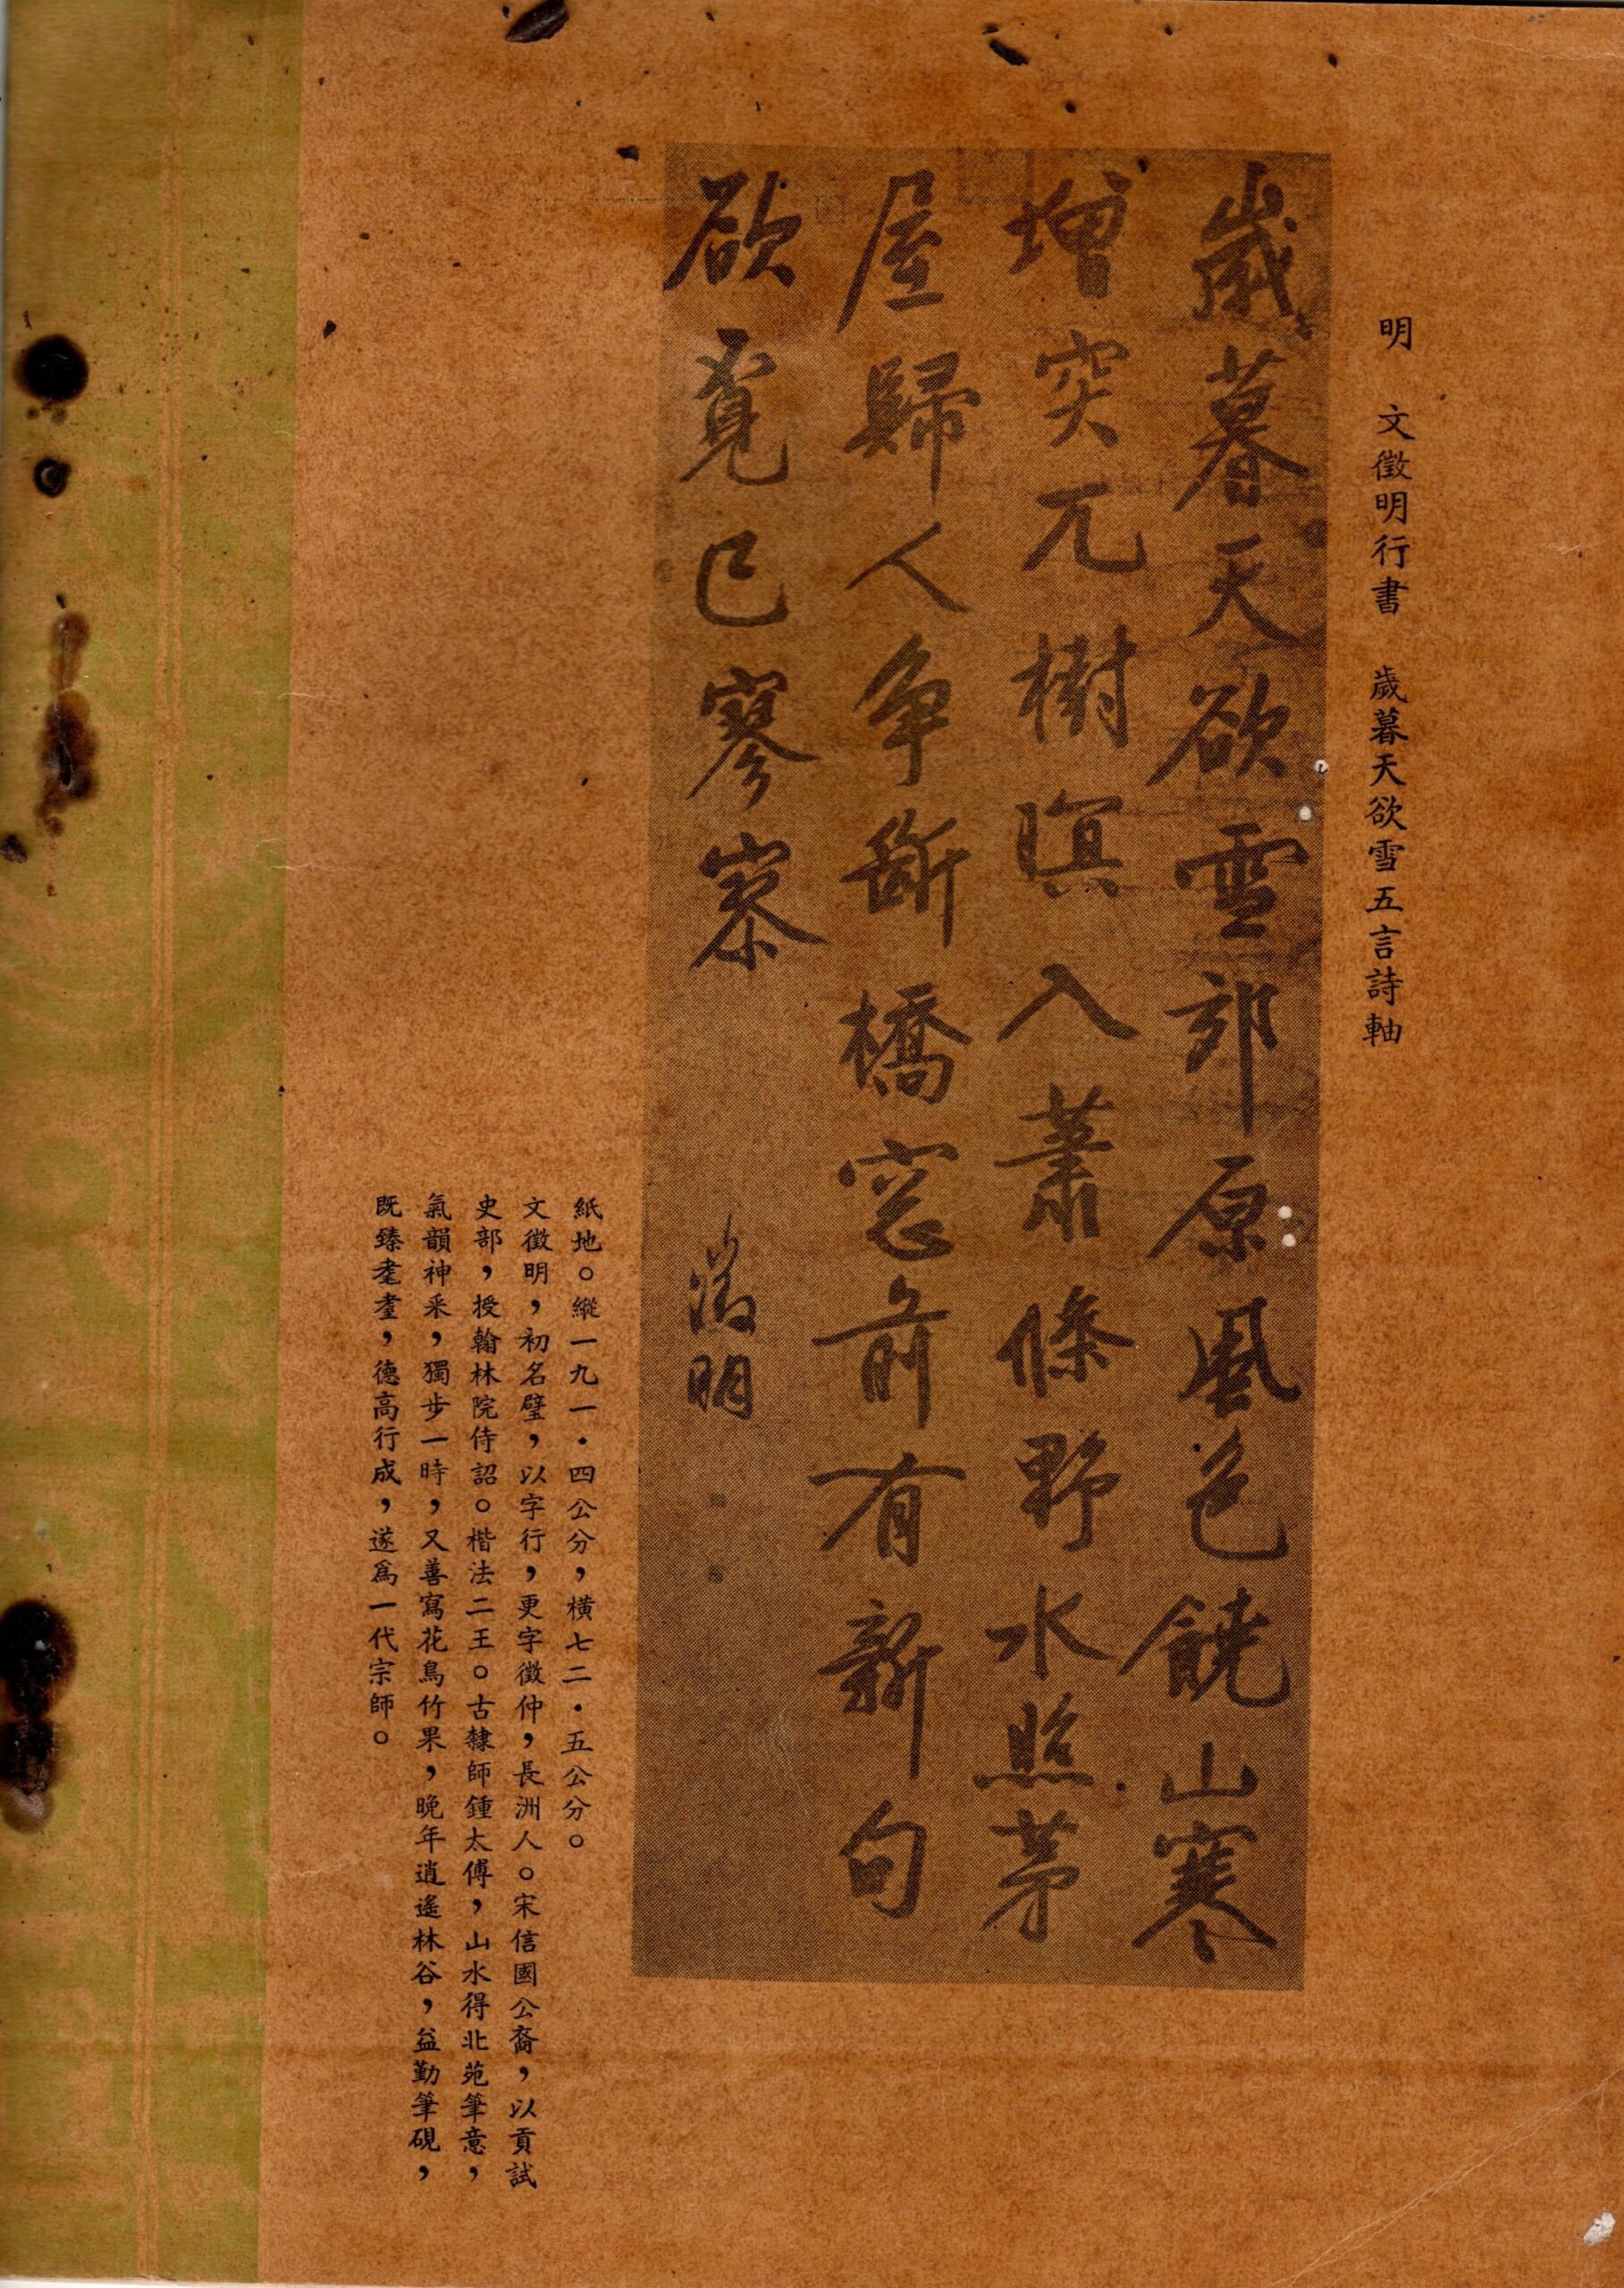 明　文徵明行書　歲暮天欲雪五言詩軸
歲暮天欲雪郊原風色饒山寒
增突兀樹暝入蕭條野水照茅
屋歸人争斷橋窓前有新句
欲覓已寥寥
徵明
紙地。縱一九一・四公分，橫七二・五公分。
文徵明，初名璧，以字行，更字徵仲，長洲人。宋信國公裔，以貢試
史部，授翰林院侍詔。楷法二王。古隸師鍾太傅，山水得北苑筆意，
氣韻神釆，獨步一時，又善寫花鳥竹果，晚年逍遙林谷，益勤筆硯，
既臻耄耋，德高行成，遂爲一代宗師。